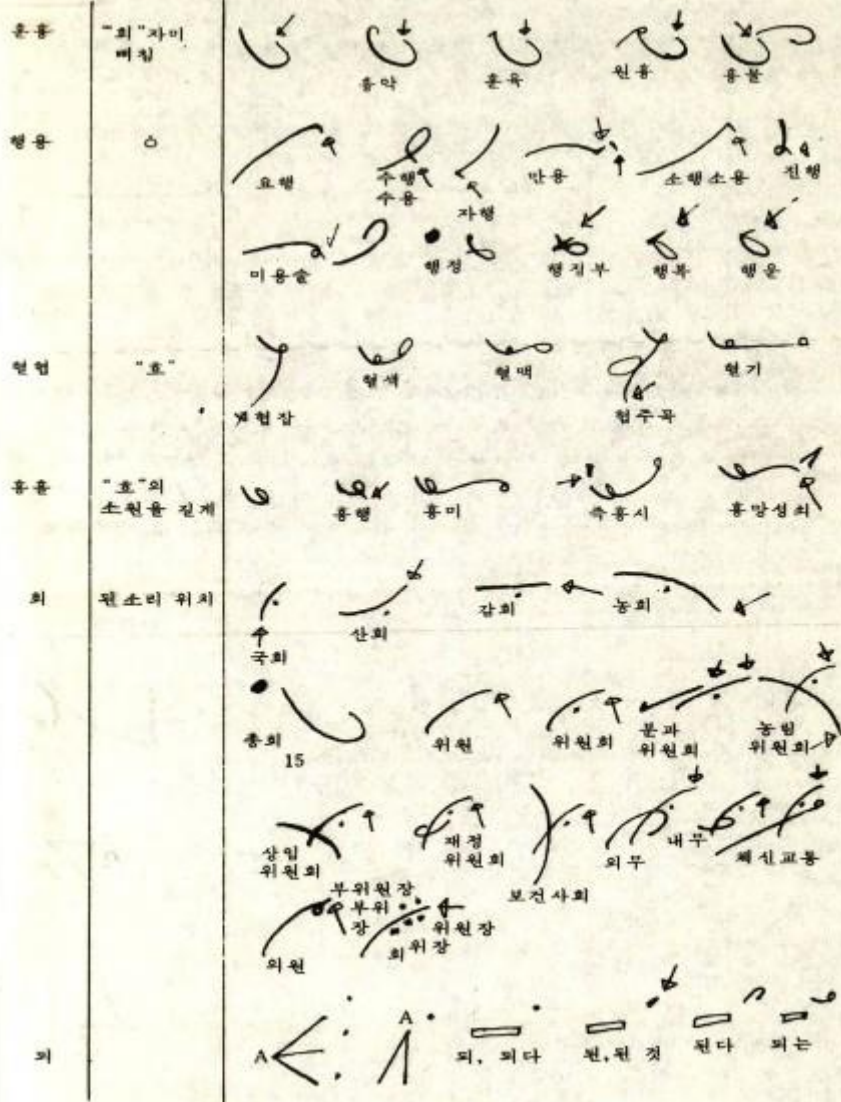 훈흥 "회"자미 삐침
흥악 훈육 원흉 흉물
행용 ㅇ
요행 수행 수용 자행 만용 소행소용 진행
미용술 행정 행정부 행복 행운
혈협 "호"
협잡 혈색 혈맥 협주곡 혈기
흥흘 "호"의 소원을 길게
흥행 흥미 즉흥시 흥망성쇠
회 된소리 위치
국회 산회 감회 농회
총회 위원 위원회 분과 위원회 농림 위원회
15
상임 위원회 재정 위원회 보건사회 외무 내무 체신교통
부위원장
부위 위원장
장 회 위장
의원
되 A A 되, 되다 된,된 것 된다 되는